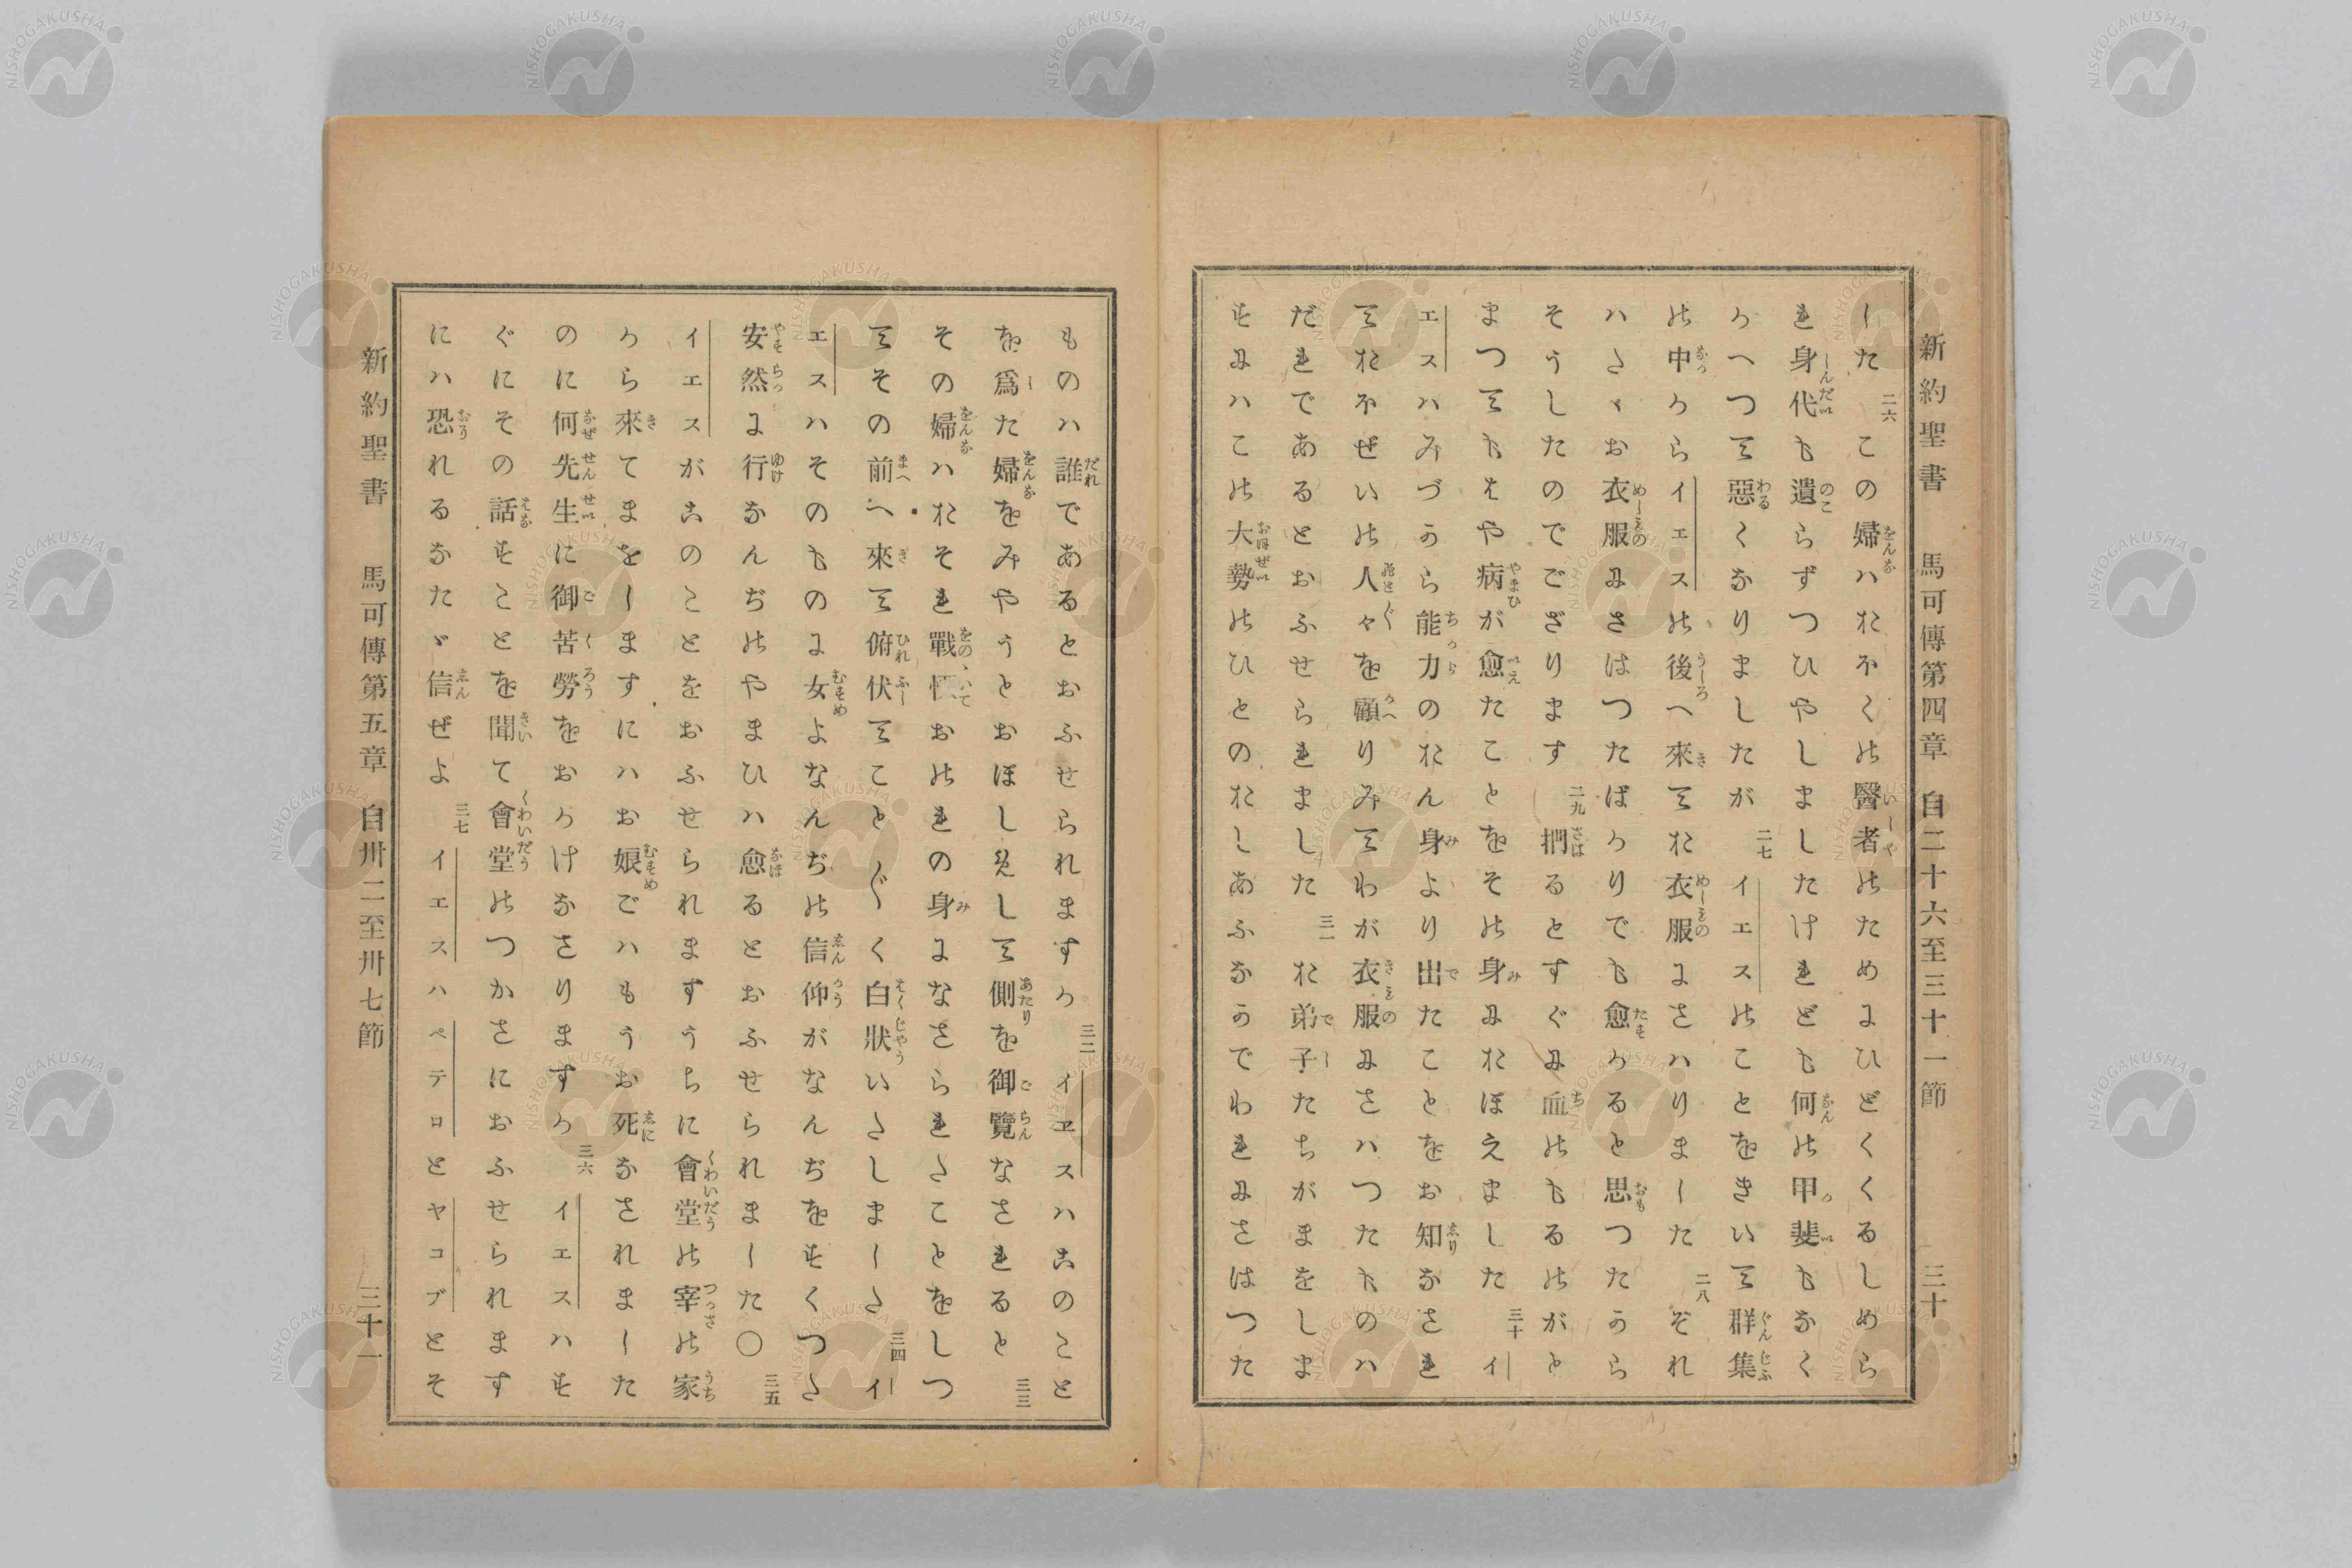 新約聖書 馬可傳第四章 自二十六至三十一節 三十
した 二六 この婦ハおほくの醫者のためにひどくくるしめら
れ身代も遺らずつひやしましたけれども何の甲斐もなく
かへつて惡くなりましたが 二七 イエスのことをきいて群集
の中からイエスの後へ來てお衣服にさハりました 二八 それ
ハたゞお衣服にさはつたばかりでも愈かると思つたから
そうしたのでござります 二九 捫るとすぐに血のもるのがと
まつてもはや病が愈たことをその身におぼえました 三十 イ
エスハみづから能力のおん身より出たことをお知なされ
ておほぜいの人々を顧りみてわが衣服にさハつたものハ
だれであるとおふせられました 三一 お弟子たちがまをしま
すにハこの大勢のひとのおしあふなかでわれにさはつた
ものハ誰であるとおふせられますか 三二 イエスハこのこと
を爲た婦をみやうとおぼしめして側を御覽なさると 三三
その婦ハおそれ戰慄おのれの身になさられたことをしつ
てその前へ來て俯伏てこと〴〵く白狀いたしました 三四 イ
エスハそのものに女よなんぢの信仰がなんぢをすくつた
安然に行なんぢのやまひハ愈るとおふせられました〇 三五
イエスがこのことをおふせられますうちに會堂の宰の家
から來てまをしますにハお娘ごハもうお死なされました
のに何先生に御苦勞をおかけなさりますか 三六 イエスハす
ぐにその話すことを聞て會堂のつかさにおふせられます
にハ恐れるなたゞ信ぜよ 三七 イエスハペテロとヤコブとそ
新約聖書 馬可傳第五章 自卅二至卅七節 三十一
NISHOGAKUSHA